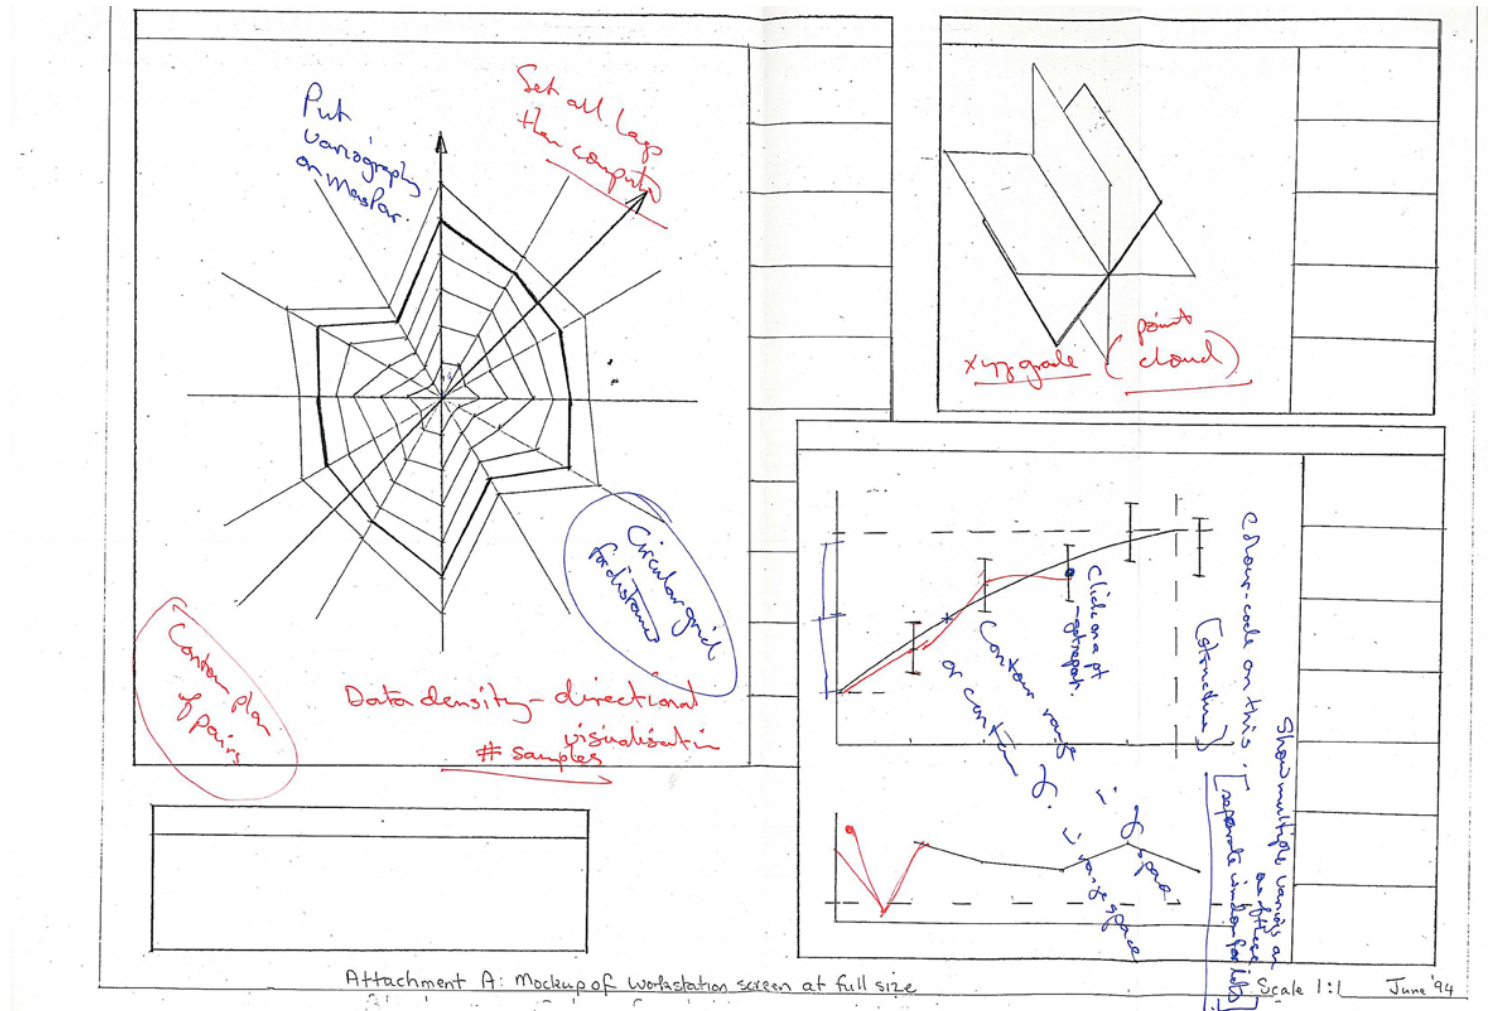 Put
variography
on Maspar.
Set all lags
then compute
Circular grid
for distance
Contour plan
of pairs
Data density - directional
visualisation
# samples
xyz grade (point
cloud)
Click on a pt
Contour range
or contour γ.
in γ space
in range space
Colour-code on this.
(structure)
Show multiple varios on
[separate window for lots]
Attachment A: Mockup of workstation screen at full size
Scale 1:1
June '94